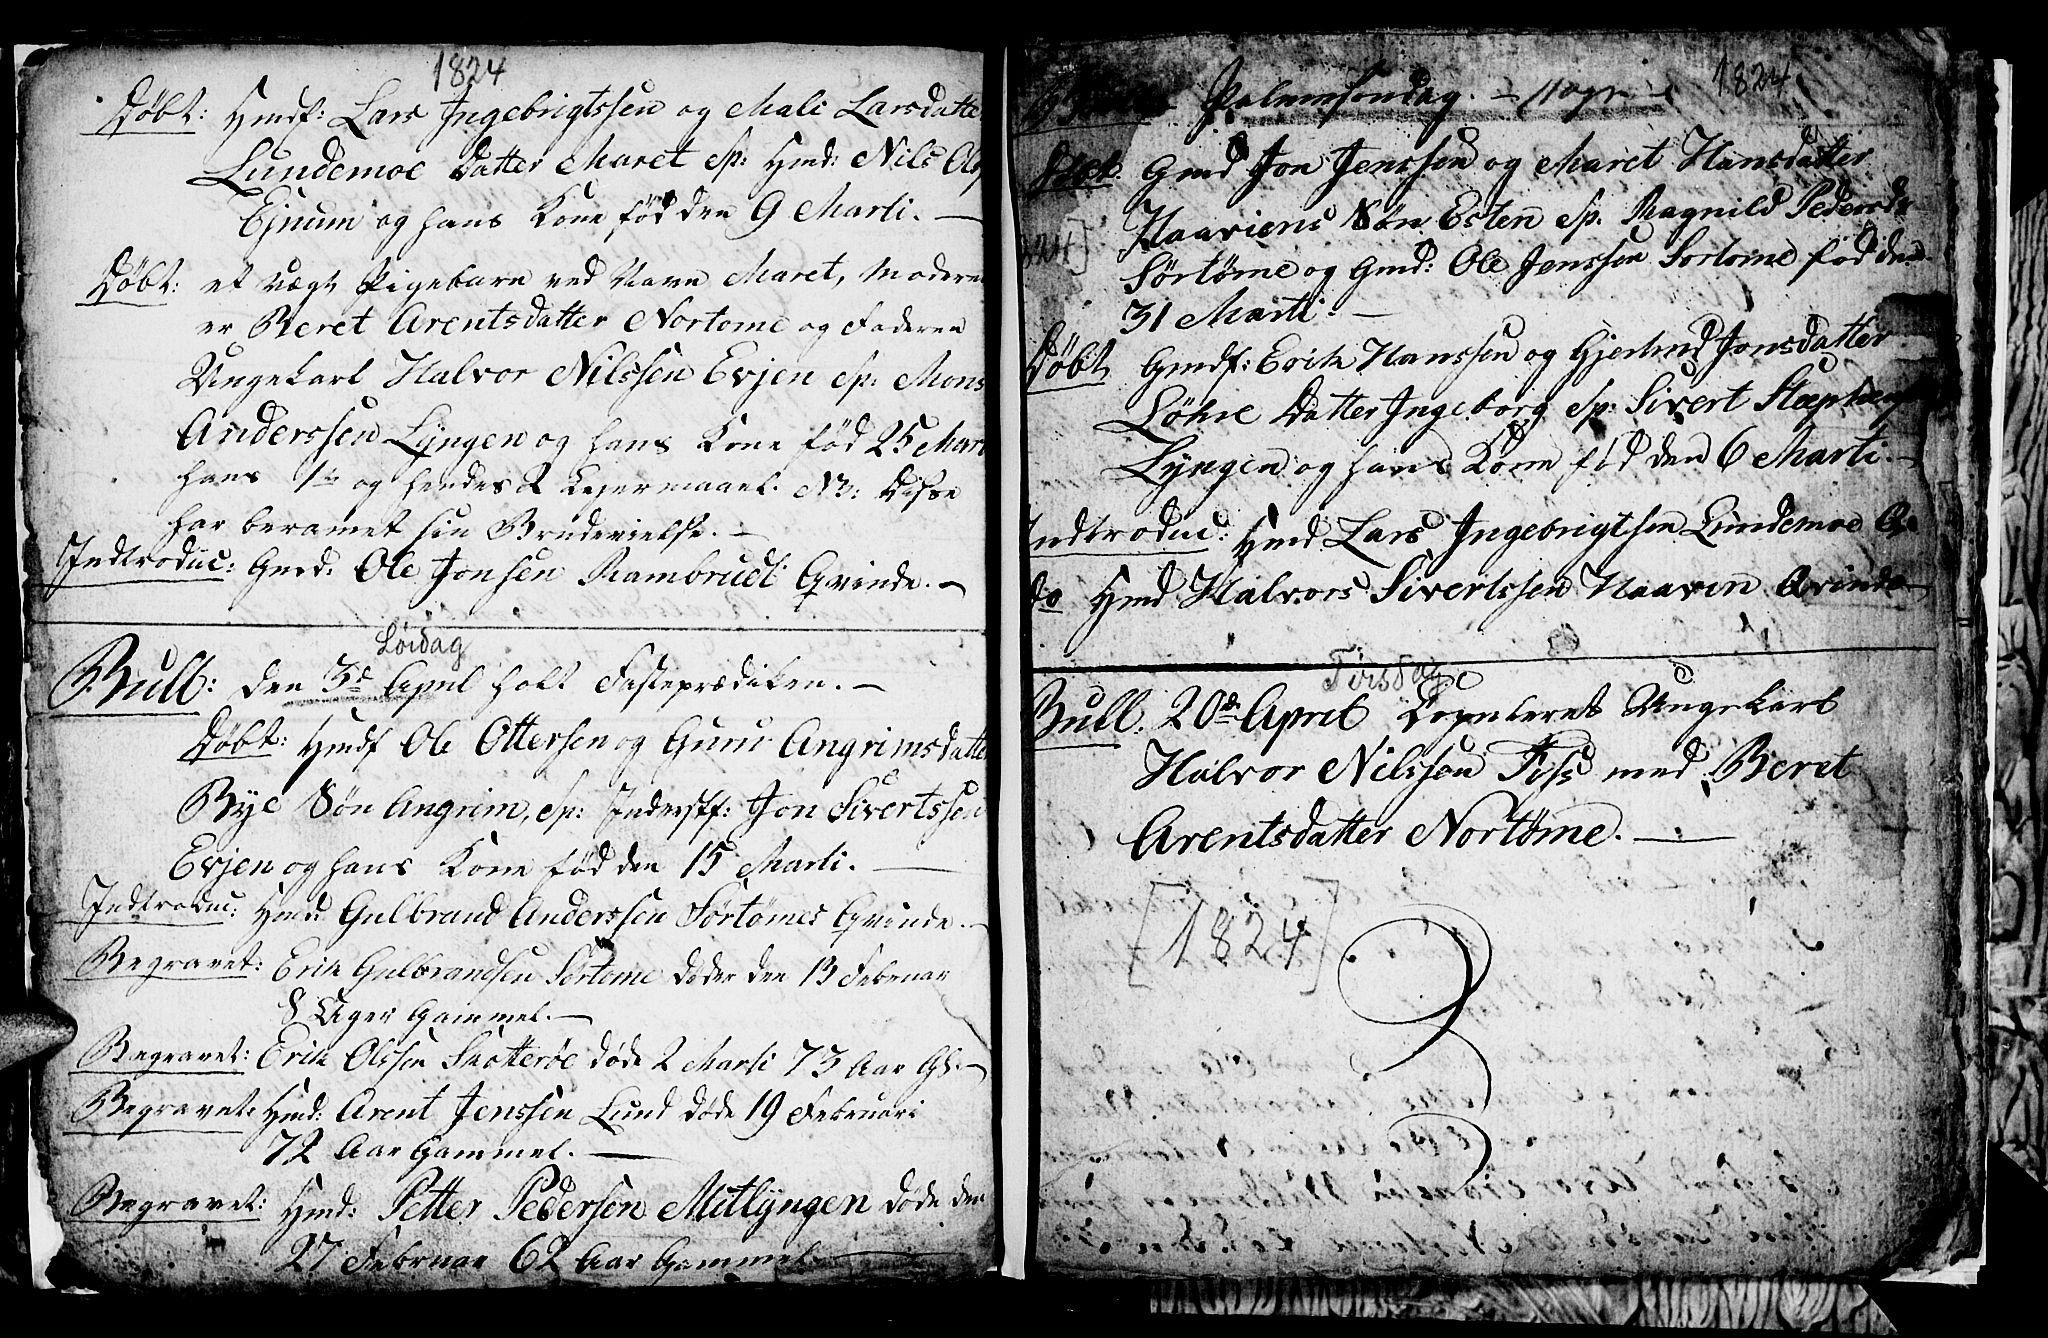 1824
Døbt: Hmdf: Lars Ingebrigtssen og Mali Larsdatte
Lundemoe Datter Maret sp: Hmd: Nils Ols
Ejnum og hans Kone fød den 9 Marti. —
Døbt: et uægt Pigebarn ved Navn Maret, Moderen
er Beret Arentsdatter Nortome og Faderen
Ungekarl Halvor Nilssen Evjen sp: Mons
Anderssen Lyngen og hans Kone fød 25 Mar
hans 1te og hendes 2 Lejermaael. NB: Disse
har beramet sin Brudevielse. —
Indtroduc: Gmd: Ole Jonsen Rambrudt Qvinde. —
Løidag
Bull: den 3de April holt Fasteprædiken. —
Døbt: Hmdf Ole Ottersen og Guru Angrimsdatte
Bye Søn Angrim, sp: Inderstf: Jon Sivertssen
Evjen og hans Kone fød den 15 Marti. —
Indtroduc: Hmd: Gulbrand Anderssen Sørtømes Qvinde. —
Begravet: Erik Gulbrandsen Sørtome døde den 13 Februar
8 Uger Gammel. —
Begravet: Erik Olssen Skotteröe døde 2 Marti 73 Aar Gl. —
Begravet: Hmd: Arent Jenssen Lund døde 19 Februari
72 Aar Gammel. —
Begravet: Hmd: Petter Pedersen Mitlyngen døde den
27 Februar 62 Aar Gammel. —
Palmesøndag. 1824
Gmd Jon Jenssen og Maret Hansdatter
Haaviens Søn Esten sp: Ragnild Pedersda
1824]
Sørtøme og Gmd: Ole Jenssen Sortome fød den
31 Marti. —
Døbt Gmdf: Erik Hanssen og Gjertrud Jonsdatter
Løhre Datter Ingeborg sp: Sivert
Lyngen og hans Kone fød den 6 Marti. —
Indtroduc: Hmd Lars Ingebrigtsen Lundemoe
do Hmd Halvors Sivertssen Haaven Qvinde
Tirsdag
Bull: 20de April Copuleret Ungekarl
Halvor Nilssen Fiss med Beret
Arentsdatter Nortøme. —
[1824]